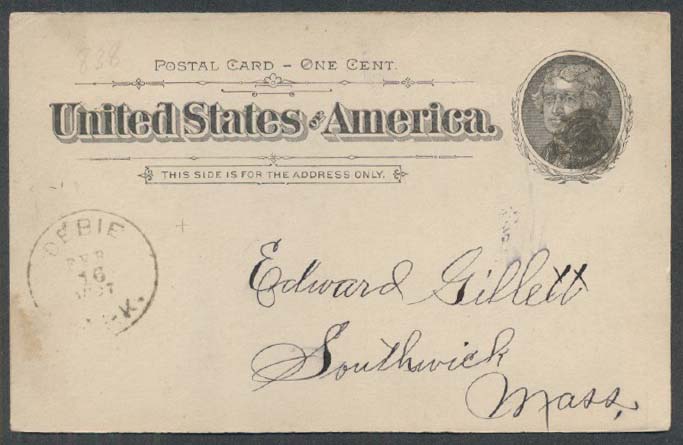 838
POSTAL CARD – ONE CENT.
United States of America.
THIS SIDE IS FOR THE ADDRESS ONLY.
DEBIE
16
Edward Gillett
Southwick
Mass.